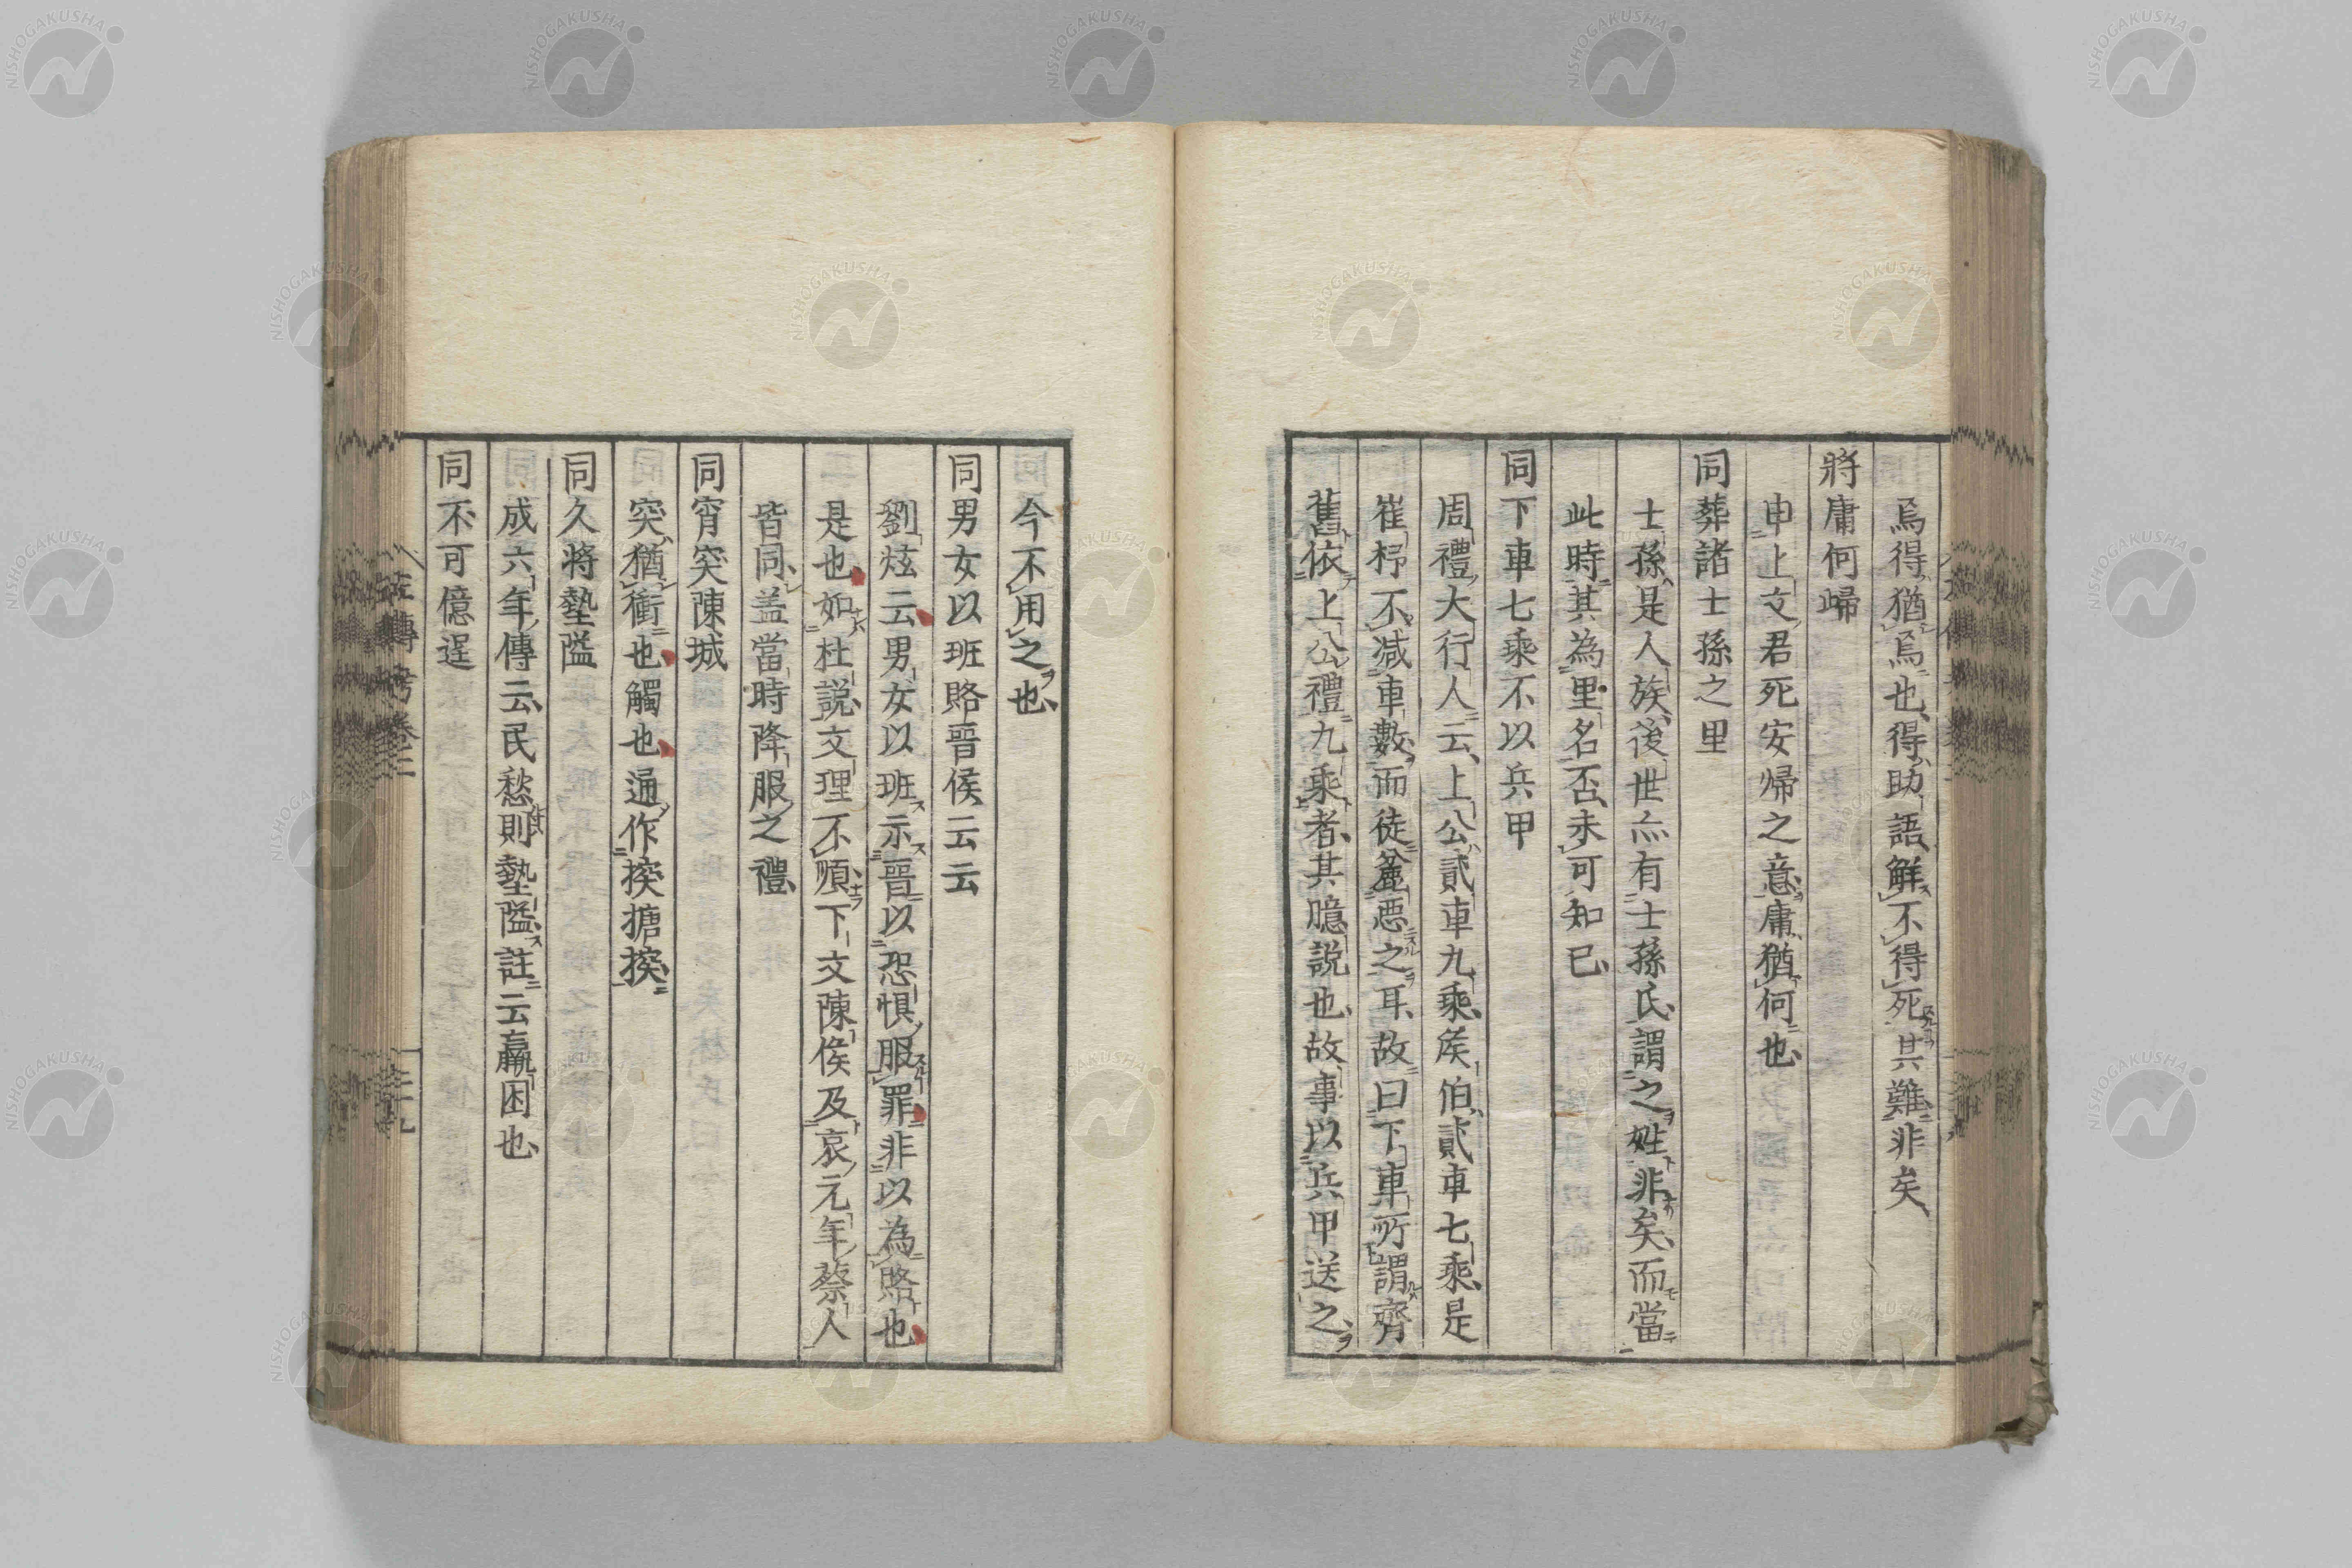 焉得猶焉也得助語解不得死其難非矣
將庸何歸
申上文君死安帰之意庸猶何也
同葬諸士孫之里
士孫是人族後世亦有士孫氏謂之姓非矣而當
此時其為里名否未可知已
同下車七乘不以兵甲
周禮大行人云上公貳車九乘侯伯貳車七乘是
崔杼不减車數而徒麁惡之耳故曰下車所謂齊
舊依上公禮九乘者其臆説也故事以兵甲送之
今不用之也
同男女以班賂晉侯云云
劉炫云男女以班示晉以恐惧服罪非以為賂也
是也如杜説文理不順下文陳侯及哀元年蔡人
皆同盖當時降服之禮
同宵突陳城
突猶衝也觸也通作揬搪揬
同久將墊隘
成六年傳云民愁則墊隘註云羸困也
同不可億逞
左傳考卷二
三九
NISHOGAKUSHA